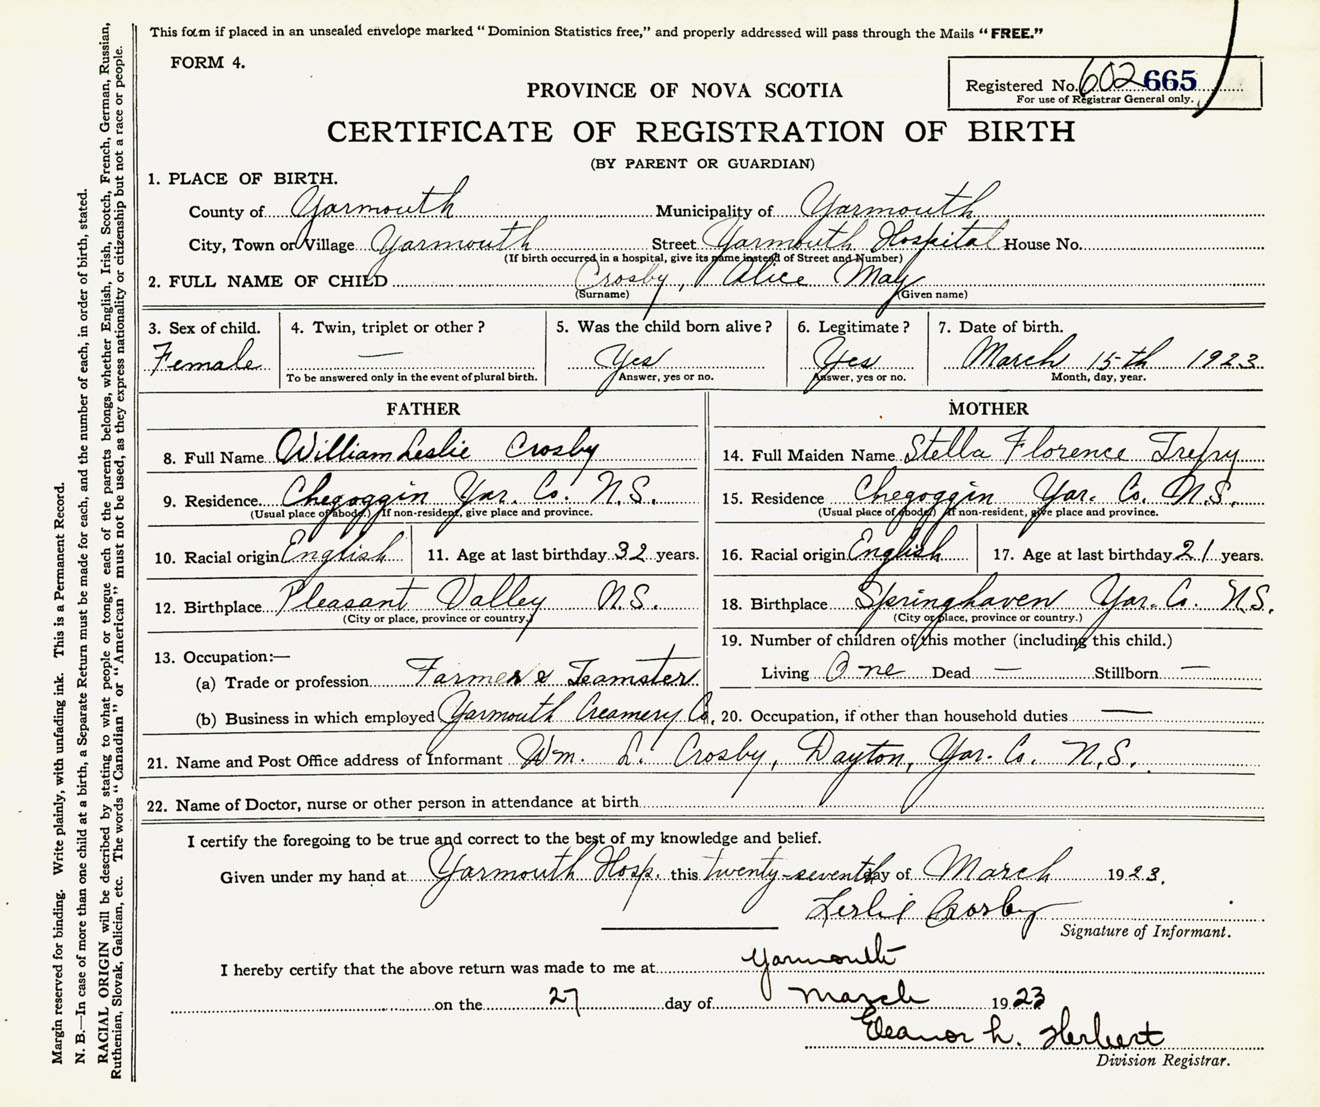 This form if placed in an unsealed envelope marked "Dominion Statistics free," and properly addressed will pass through the Mails "FREE."
FORM 4.
Registered No. 602665
For use of Registrar General only.
PROVINCE OF NOVA SCOTIA
CERTIFICATE OF REGISTRATION OF BIRTH
(BY PARENT OR GUARDIAN)
1. PLACE OF BIRTH.
County of Yarmouth Municipality of Yarmouth
City, Town or Village Yarmouth Street Yarmouth Hospital House No.
(If birth occurred in a hospital, give its name instead of Street and Number)
2. FULL NAME OF CHILD Crosby, Alice May
(Surname) (Given name)
3. Sex of child. 4. Twin, triplet or other? 5. Was the child born alive? 6. Legitimate? 7. Date of birth.
Female — Yes Yes March 15th 1923
To be answered only in the event of plural birth. Answer, yes or no. Answer, yes or no. Month, day, year.
FATHER
8. Full Name William Leslie Crosby
9. Residence Chegoggin Yar. Co. N.S.
(Usual place of abode.) (If non-resident, give place and province.
10. Racial origin English 11. Age at last birthday 32 years.
12. Birthplace Pleasant Valley N.S.
(City or place, province or country.)
13. Occupation:—
(a) Trade or profession Farmer & Teamster
(b) Business in which employed Yarmouth Creamery Co.
MOTHER
14. Full Maiden Name Stella Florence Trefry
15. Residence Chegoggin Yar. Co. N.S.
(Usual place of abode) (If non-resident, give place and province.
16. Racial origin English 17. Age at last birthday 21 years.
18. Birthplace Springhaven Yar. Co. N.S.
(City or place, province or country.)
19. Number of children of this mother (including this child.)
Living One Dead — Stillborn —
20. Occupation, if other than household duties —
21. Name and Post Office address of Informant Wm. L. Crosby, Dayton, Yar. Co. N.S.
22. Name of Doctor, nurse or other person in attendance at birth
I certify the foregoing to be true and correct to the best of my knowledge and belief.
Given under my hand at Yarmouth Hosp. this twenty-seventh day of March 1923.
Leslie Crosby
Signature of Informant.
I hereby certify that the above return was made to me at Yarmouth
on the 27 day of March 1923
Eleanor L. Herbert
Division Registrar.
Margin reserved for binding. Write plainly, with unfading ink. This is a Permanent Record.
N. B.—In case of more than one child at a birth, a Separate Return must be made for each, and the number of each, in order of birth, stated.
RACIAL ORIGIN will be described by stating to what people or tongue each of the parents belongs, whether English, Irish, Scotch, French, German, Russian,
Ruthenian, Slovak, Galician, etc. The words "Canadian" or "American" must not be used, as they express nationality or citizenship but not a race or people.